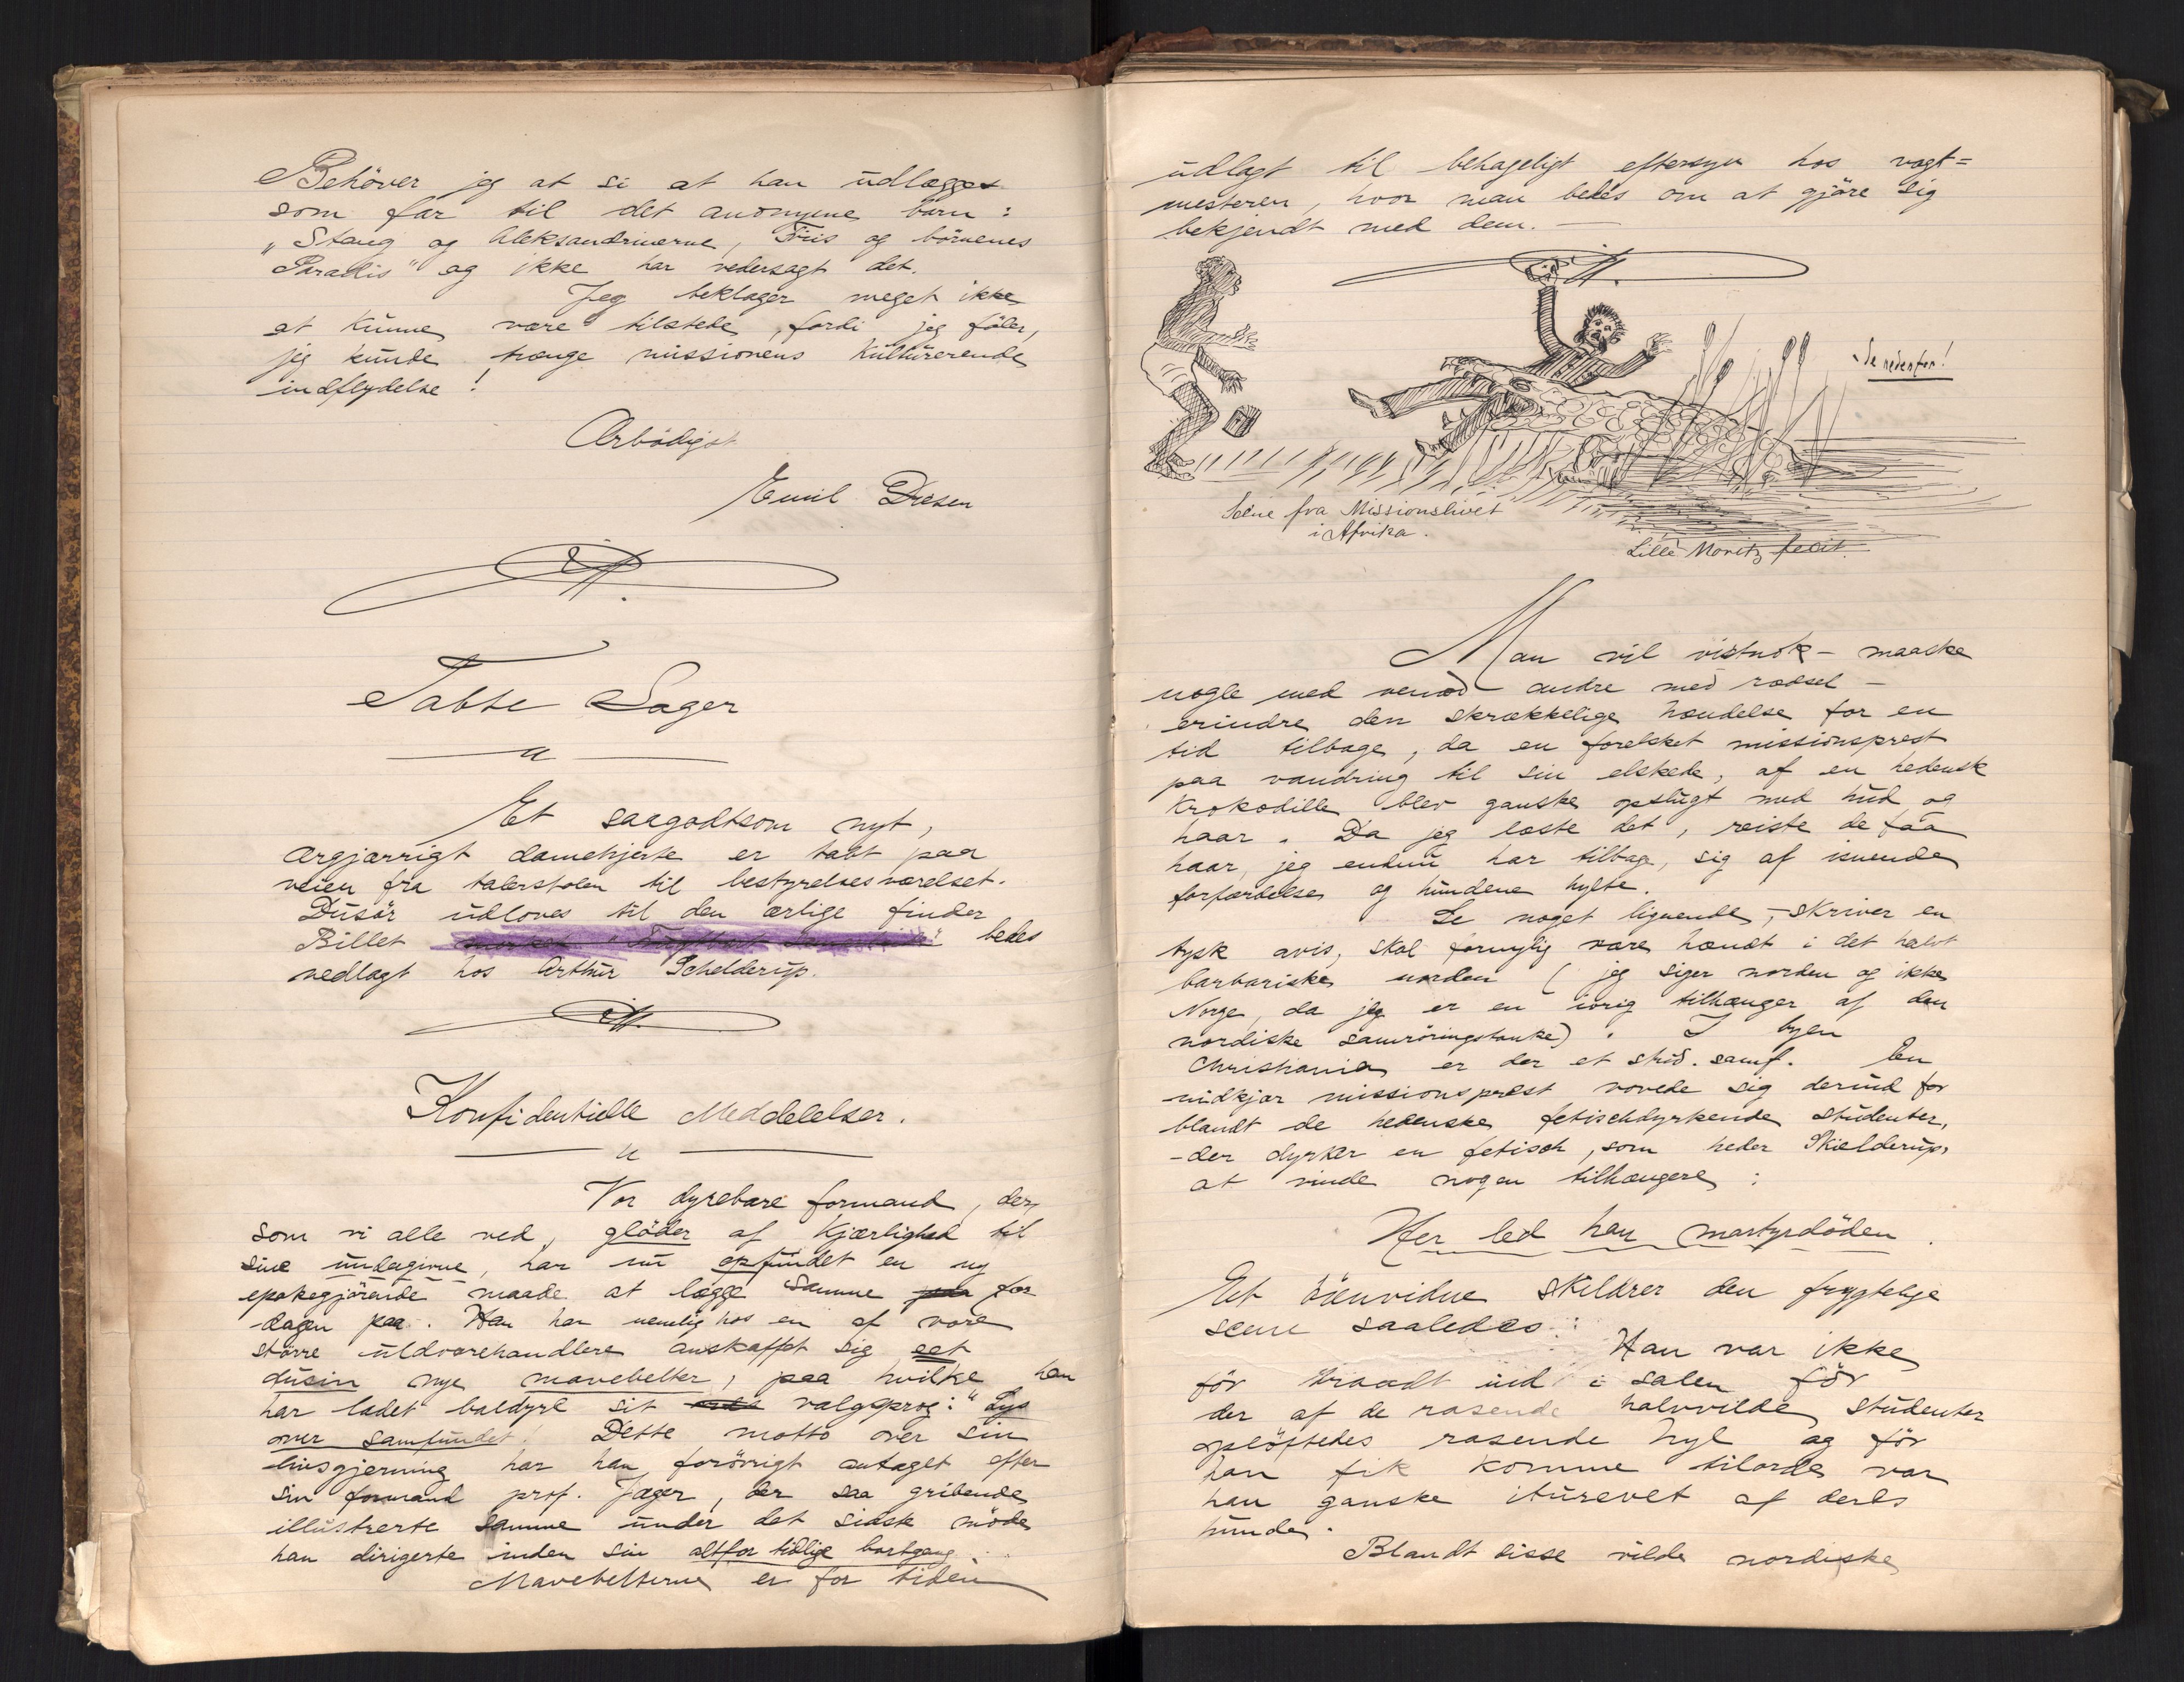 Behöver jeg at si at han udlægges
som far til det anonyme barn:
"Stang og Aleksandrinerne, Friis og börnenes
Paradis" og ikke har vedersagt det.
Jeg beklager meget ikke
at kunne være tilstede, fordi jeg föler,
jeg kunde trænge missionens kulturerende
indflydelse!
Ærbödigst
Emil Diesen
Tabte Sager
Et saagodtsom nyt,
ærgjærrigt damehjerte er tabt paa
veien fra talerstolen til bestyrelsesværelset.
Dusör udloves til den ærlige finder
Billet bedes
nedlagt hos Arthur Schelderup.
Konfidentielle Meddelelser.
Vor dyrebare formand, der,
som vi alle ved, glöder af kjærlighed til
sine undergivne, har nu opfundet en ny
epokegjörende maade at lægge samme paa for
dagen paa. Han har nemlig hos en af vore
större uldvarehandlere anskaffet sig eet
dusin nye mavebelter, paa hvilke han
har ladet baldyre sit valgsprog: "Lys
over samfundet! Dette motto over sin
livsgjerning har han forövrigt antaget efter
sin formand prof. Jæger, der saa gribende
illustrerte samme under det sidste möde
han dirigerte inden sin altfor tidlige bortgang.
Mavebelterne er for tiden
udlagt til behageligt eftersyn hos vagt=
mesteren, hvor man bedes om at gjöre sig
bekjendt med dem. —
Se nedenfor!
Scene fra Missionslivet
i Afrika.
Lille Moritz fecit.
Man vil vistnok – maaske
nogle med vemod – andre med rædsel –
erindre den skrækkelige hændelse for en
tid tilbage, da en forelsket missionsprest
paa vandring til sin elskede, af en hedensk
krokodille blev ganske opslugt med hud og
haar. Da jeg læste det, reiste de faa
haar, jeg endnu har tilbage, sig af isnende
forfærdelse og hundene hylte.
Se noget lignende, skriver en
tysk avis, skal fornylig være hændt i det halvt
barbariske norden (jeg siger norden og ikke
Norge, da jeg er en ivrig tilhænger af den
nordiske samröringstanke). I byen
Christiania er der et stud. samf. En
nidkjær missionsprest vovede sig derind for
blandt de hedenske fetischdyrkende studenter,
– der dyrker en fetisch, som heder Skielderup,
at vinde nogen tilhængere:
Her led han martyrdöden.
Et öienvidne skildrer den frygtelige
scene saaledes:
Han var ikke
för traadt ind i salen för
der af de rasende halvvilde studenter
oplöftedes rasende hyl og för
han fik komme tilorde var
han ganske iturevet af deres
hunde.
Blandt disse vilde nordiske